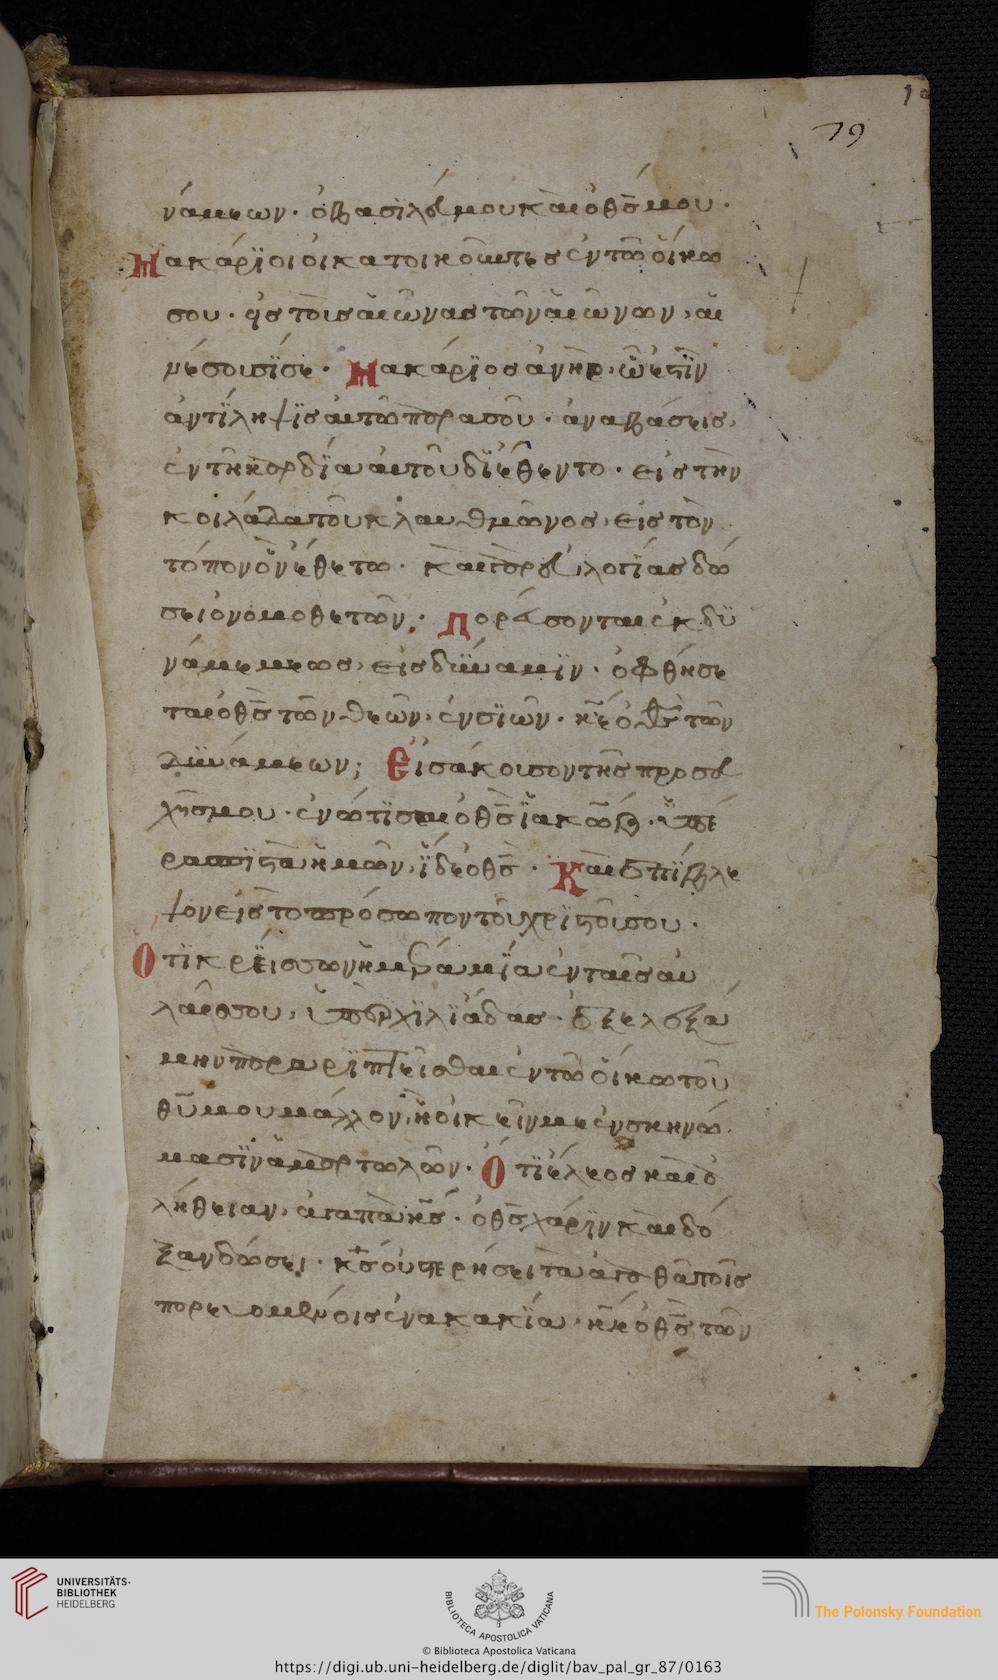 79
νάμεων· ὁ βασϊλεύς μου καὶ ὁ θς μου·
Μακάρϊοι οἱ κατοικοῦντες ἐν τῶ οἴκω
σου· εἰς τοὺς αἰῶνας τῶν αἰώνων, αἰ
νέσουσϊ σε· Μακάρϊος ἀνὴρ, ὧ ἐστϊν
ἀντϊληψϊς αὐτῶ παρα σοῦ· ἀναβάσεις,
ἐν τῆ καρδϊα αὐτοῦ διέθεντο· εἰς τὴν
κοιλάδα τοῦ κλαυθμῶνος, εἰς τὸν
τόπον ὃν ἔθετω· καὶ γὰρ εὐλογϊας δώ
σει ὁ νομοθετῶν· Πορεύσονται ἐκ δϋ
νάμεμεως, εἰς δύναμϊν· ὀφθήσε
ται ὁ θς τῶν θεῶν, ἐν σϊών· κε ὁ θς τῶν
δυνάμεων; Εἰσάκουσον τῆς προσευ
χῆς μου· ἐνώτϊσαι ὁ θς ϊακώβ· ὑπε
ρασπϊστὰ ἡμῶν, ϊδε ὁ θς· Καὶ ἐπϊβλε
ψον εἰς το πρόσωπον τοῦ χρϊστοῦ σου·
Ὅτϊ κρείσσων ἡμέρα μϊα ἐν ταῖς αὐ
λαῖς σου, ὑπὲρ χϊλϊάδας· ἐξελεξά
μην παραρϊπτεῖσθαι ἐν τῶ οἴκω τοῦ
θυ μου μάλλον, ἢ οἰκεῖν με ἐν σκηνώ
μασϊν ἁμαρτωλῶν· Ὅτϊ ἔλεος καὶ ἀ
λήθειαν, ἀγαπὰ κς· ὁ θς χάρϊν καὶ δό
ξαν δώσει· κς οὐ στερήσει τὰ ἀγαθὰ τοῖς
πορευομένοις ἐν ακακϊα· κε ὁ θς τῶν
UNIVERSITÄTS-
BIBLIOTHEK
HEIDELBERG
BIBLIOTECA APOSTOLICA VATICANA
The Polonsky Foundation
© Biblioteca Apostolica Vaticana
https://digi.ub.uni-heidelberg.de/diglit/bav_pal_gr_87/0163